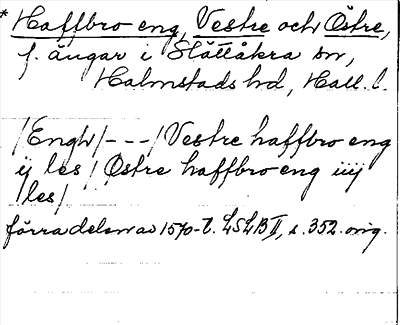 * Haffbro eng, Vestre och Östre,
f. ängar i Slättåkra sn,
Halmstads hd, Hall. l.
/Engh/ - - - / Vestre haffbro eng
ij les / Östre haffbro eng iiij
les /
förra delen av 1570-t. LSLB II, s. 352. orig.